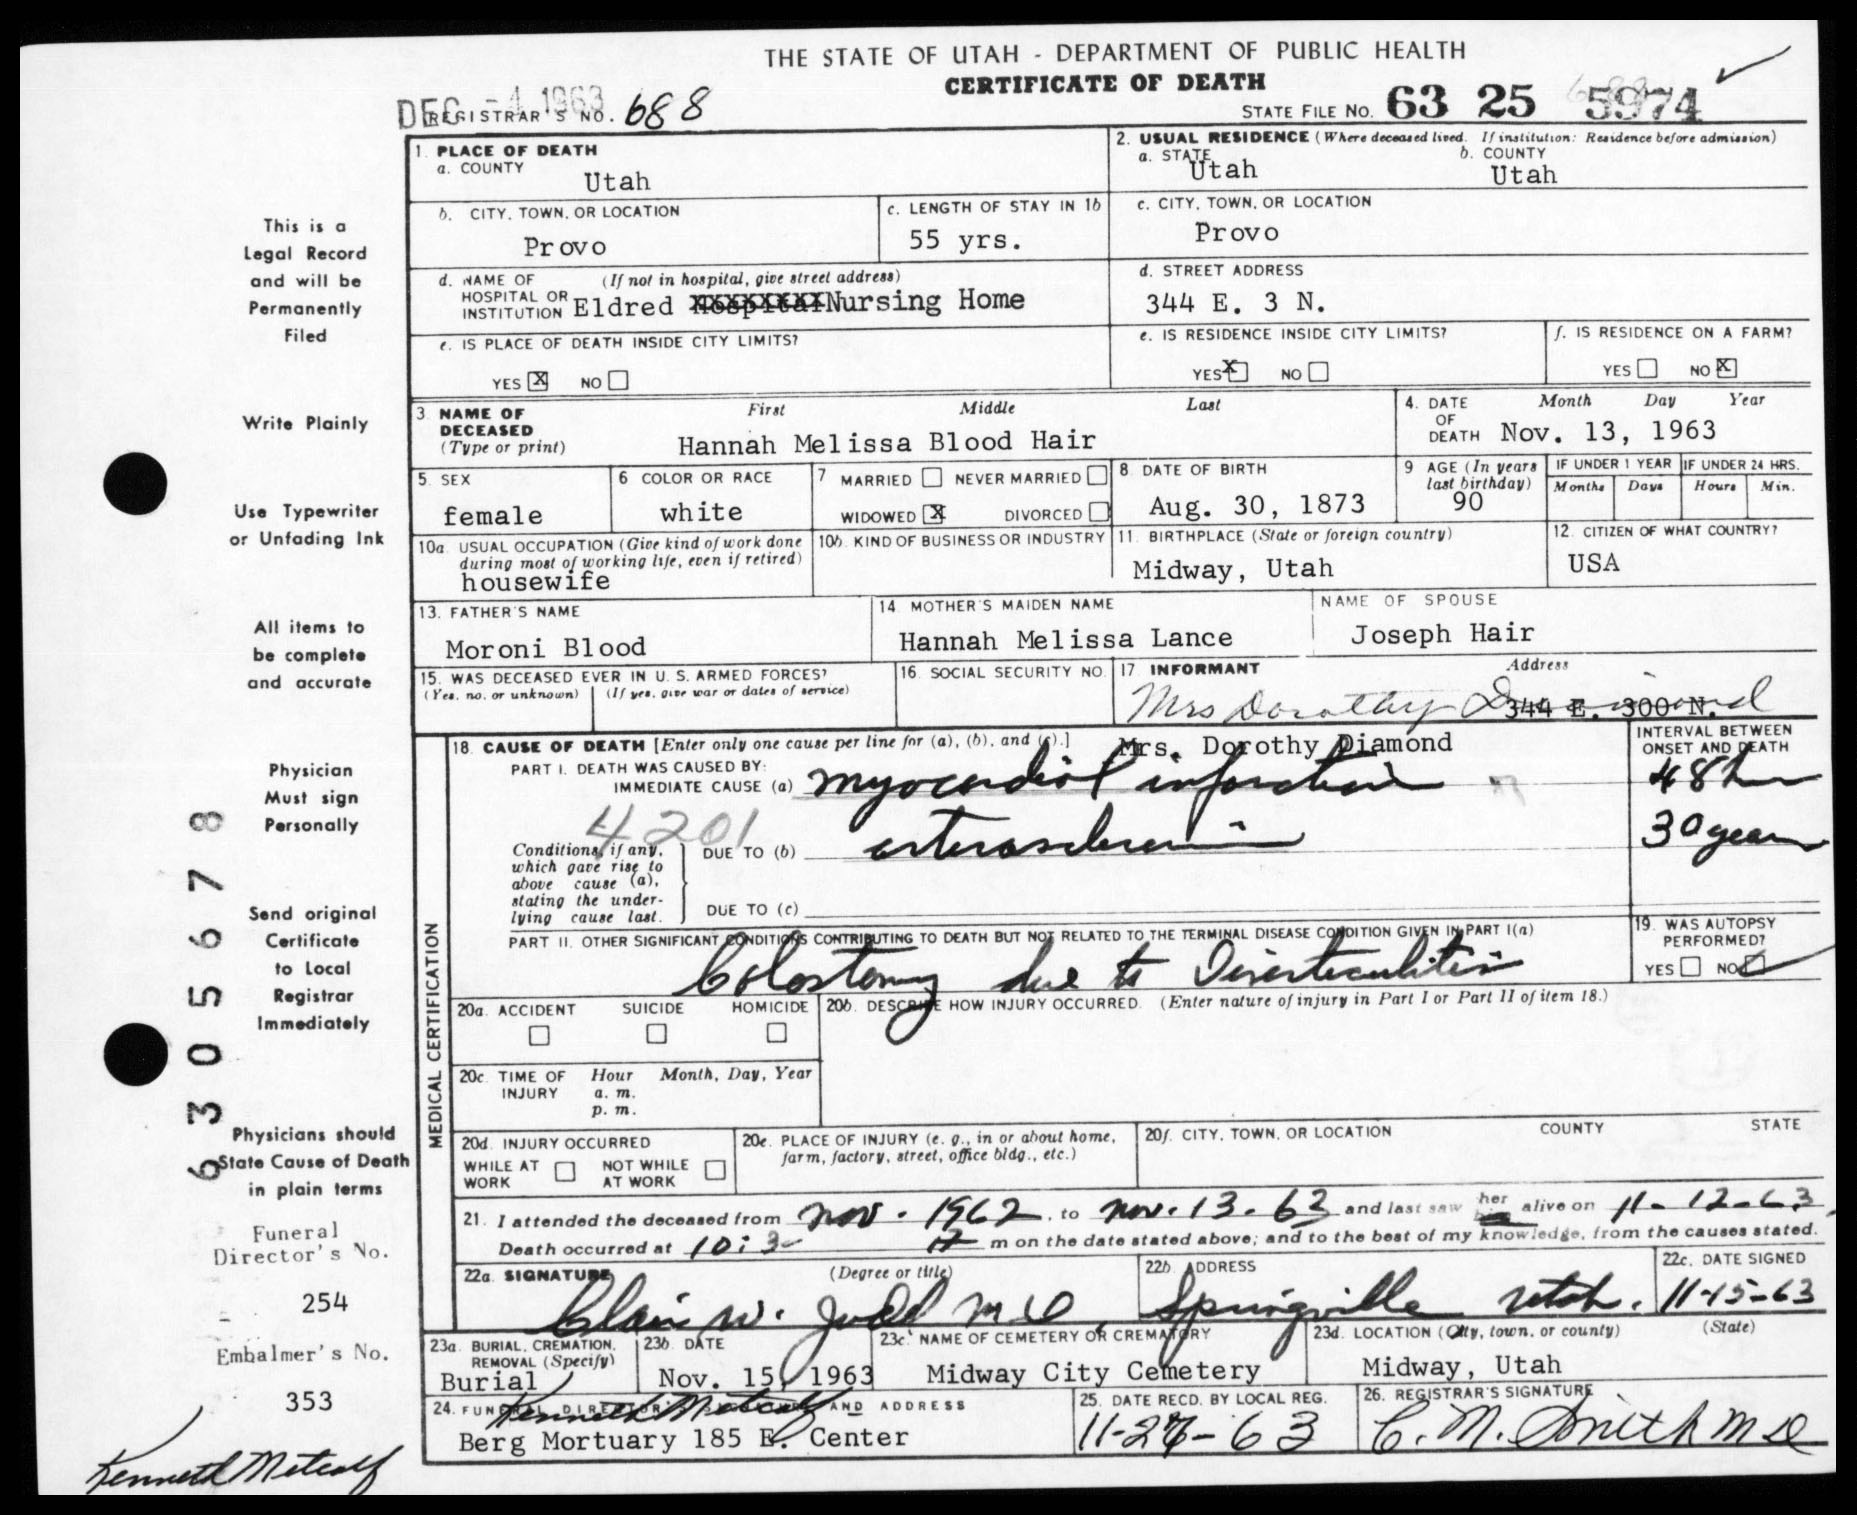 THE STATE OF UTAH - DEPARTMENT OF PUBLIC HEALTH
CERTIFICATE OF DEATH
DEC -4 1963
REGISTRAR'S NO. 688
STATE FILE NO. 63 25 5974
1. PLACE OF DEATH
a. COUNTY
Utah
2. USUAL RESIDENCE (Where deceased lived. If institution: Residence before admission)
a. STATE
Utah
b. COUNTY
Utah
b. CITY, TOWN, OR LOCATION
Provo
c. LENGTH OF STAY IN 1b
55 yrs.
c. CITY, TOWN, OR LOCATION
Provo
d. NAME OF (If not in hospital, give street address)
HOSPITAL OR
INSTITUTION Eldred Hospital Nursing Home
d. STREET ADDRESS
344 E. 3 N.
e. IS PLACE OF DEATH INSIDE CITY LIMITS?
YES X NO
e. IS RESIDENCE INSIDE CITY LIMITS?
YES X NO
f. IS RESIDENCE ON A FARM?
YES NO X
3. NAME OF DECEASED
(Type or print)
First Middle Last
Hannah Melissa Blood Hair
4. DATE OF DEATH
Month Day Year
Nov. 13, 1963
5. SEX
female
6 COLOR OR RACE
white
7 MARRIED NEVER MARRIED
WIDOWED X DIVORCED
8 DATE OF BIRTH
Aug. 30, 1873
9 AGE (In years last birthday)
90
IF UNDER 1 YEAR
Months Days
IF UNDER 24 HRS.
Hours Min.
10a. USUAL OCCUPATION (Give kind of work done
during most of working life, even if retired)
housewife
10b. KIND OF BUSINESS OR INDUSTRY
11. BIRTHPLACE (State or foreign country)
Midway, Utah
12. CITIZEN OF WHAT COUNTRY?
USA
13. FATHER'S NAME
Moroni Blood
14. MOTHER'S MAIDEN NAME
Hannah Melissa Lance
NAME OF SPOUSE
Joseph Hair
15. WAS DECEASED EVER IN U.S. ARMED FORCES?
(Yes, no, or unknown) (If yes, give war or dates of service)
16. SOCIAL SECURITY NO.
17 INFORMANT Address
Mrs Dorothy Diamond
344 E. 300 N.
Mrs. Dorothy Diamond
MEDICAL CERTIFICATION
18. CAUSE OF DEATH [Enter only one cause per line for (a), (b), and (c).]
INTERVAL BETWEEN
ONSET AND DEATH
PART I. DEATH WAS CAUSED BY:
IMMEDIATE CAUSE (a) myocardial infarction
48 hr
4201
Conditions, if any,
which gave rise to
above cause (a),
stating the under-
lying cause last.
DUE TO (b) arteriosclerosis
30 years
DUE TO (c)
PART II. OTHER SIGNIFICANT CONDITIONS CONTRIBUTING TO DEATH BUT NOT RELATED TO THE TERMINAL DISEASE CONDITION GIVEN IN PART I(a)
Colostomy due to Diverticulitis
19. WAS AUTOPSY
PERFORMED?
YES NO
20a. ACCIDENT SUICIDE HOMICIDE
20b. DESCRIBE HOW INJURY OCCURRED. (Enter nature of injury in Part I or Part II of item 18.)
20c. TIME OF INJURY
Hour Month, Day, Year
a. m.
p. m.
20d. INJURY OCCURRED
WHILE AT WORK
NOT WHILE AT WORK
20e. PLACE OF INJURY (e. g., in or about home,
farm, factory, street, office bldg., etc.)
20f. CITY, TOWN, OR LOCATION COUNTY STATE
21. I attended the deceased from Nov. 1962, to Nov. 13. 63 and last saw her alive on 11-12-63.
Death occurred at 10:3- m on the date stated above; and to the best of my knowledge, from the causes stated.
22a. SIGNATURE (Degree or title)
Clair W. Judd M D
22b. ADDRESS
Springville Utah.
22c. DATE SIGNED
11-15-63
23a. BURIAL, CREMATION,
REMOVAL (Specify)
Burial
23b. DATE
Nov. 15, 1963
23c. NAME OF CEMETERY OR CREMATORY
Midway City Cemetery
23d. LOCATION (City, town, or county) (State)
Midway, Utah
24. FUNERAL DIRECTOR'S AND ADDRESS
Kenneth Metcalf
Berg Mortuary 185 E. Center
25. DATE RECD. BY LOCAL REG.
11-26-63
26. REGISTRAR'S SIGNATURE
C. M. Smith M D
This is a
Legal Record
and will be
Permanently
Filed
Write Plainly
Use Typewriter
or Unfading Ink
All items to
be complete
and accurate
Physician
Must sign
Personally
Send original
Certificate
to Local
Registrar
Immediately
Physicians should
State Cause of Death
in plain terms
6305678
Funeral
Director's No.
254
Embalmer's No.
353
Kenneth Metcalf